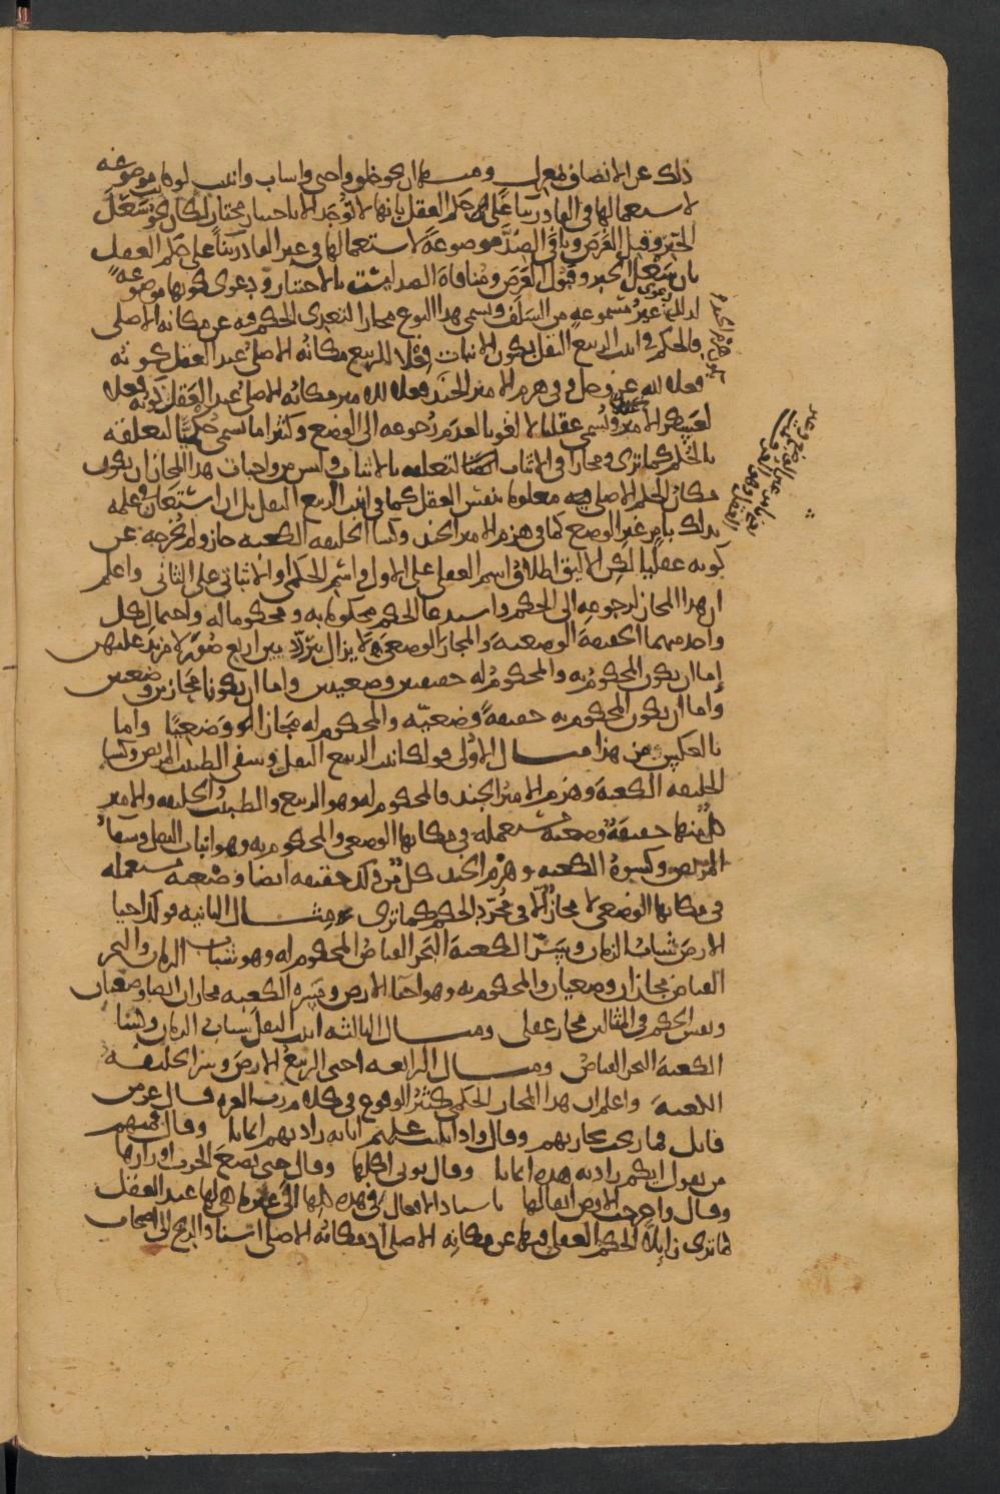 ذلك عن الانصاف بمعزل ومنها ان نحو خلق واحيى واشاب وانبت لو كانت موضوعة
لاستعمالها في القادر بناء على حكم العقل بانها لا توجد الا باختيار مختار لكان نحو شغل
الحيز وقبل العرض ونافى الضد موضوعة لاستعمالها في غير القادر بناء على حكم العقل
بان شغل الحيز وقبول العرض ومنافاة الضد ليست بالاختيار ودعوى كونها موضوعة
لذلك غير مسموعة من السلف ويسمى هذا النوع مجازا لتعدي الحكم فيه عن مكانه الاصلي
فالحكم في انبت الربيع البقل بكون الانبات فعلا للربيع مكانه الاصلي عند العقل كونه
فعلا لله عز وجل وفي هزم الامير الجند فعلا للامير مكانه الاصلي عند العقل كونه فعلا
لعسكر الامير ويسمى عقليا لا لغويا لعدم رجوعه الى الوضع وكثيرا ما يسمى حكميا لتعلقه
بالحكم كما ترى ومجازا في الاثبات ايضا لتعلقه بالاثبات وليس من واجبات هذا المجاز ان يكون
مكان الحكم الاصلي فيه معلوما بنفس العقل كما في انبت الربيع البقل بل ان استعان في علمه
بذلك بامر غير الوضع كما في هزم الامير الجند وكسا الخليفة الكعبة جاز ولم يخرجه عن
كونه عقليا لكن الاليق اطلاق اسم العقلي على الاول واسم الحكمي او الاثباتي على الثاني واعلم
ان هذا المجاز لرجوعه الى الحكم واستدعا الحكم محكوما به ومحكوما له واحتمال كل
واحد منهما الحقيقة الوضعية والمجاز الوضعي لا يزال يتردد بين اربع صور لا مزيد عليهن
إما ان يكون المحكوم به والمحكوم له حقيقتين وضعيتين واما ان يكونا مجازين وضعيين
واما ان يكون المحكوم به حقيقة وضعية والمحكوم له مجازا وضعيا واما
بالعكس من هذا مثال الاولى قولك انبت الربيع البقل وشفى الطبيب المريض وكسا
الخليفة الكعبة وهزم الامير الجند فالمحكوم له وهو الربيع والطبيب والخليفة والامير
كل منها حقيقة وضعية مستعملة في مكانها الوضعي والمحكوم به وهو انبات البقل وشفاء
المريض وكسوة الكعبة وهزم الجند كل من ذلك حقيقة ايضا وضعية مستعملة
في مكانها الوضعي لا مجاز الا في مجرد الحكم كما ترى ومثال الثانية قولك احيا
الارض شباب الزمان وسر الكعبة البحر الفياض المحكوم له وهو شباب الزمان والبحر
الفياض مجازان وضعيان والمحكوم به وهو احيا الارض ومسرة الكعبة مجازان ايضا وضعيان
ونفس الحكم في المثالين مجاز عقلي ومثال الثالثة انبت البقل شباب الزمان وكسا
الكعبة البحر الفياض ومثال الرابعة احيى الربيع الارض وسر الخليفة
الكعبة واعلم ان هذا المجاز الحكمي كثير الوقوع في كلام رب العزة قال عز من
قائل فما ربحت تجارتهم وقال واذا تليت عليهم اياته زادتهم ايمانا وقال فمنهم
من يقول ايكم زادته هذه ايمانا وقال تؤتي اكلها وقال حتى تضع الحرب اوزارها
وقال واخرجت الارض اثقالها باسناد الافعال في هذه كلها الى غير ما هي لها عند العقل
كما ترى زايلا الحكم العقلي فيها عن مكانه الاصلي اذ مكانه الاصلي اسناد الربح الى اصحاب